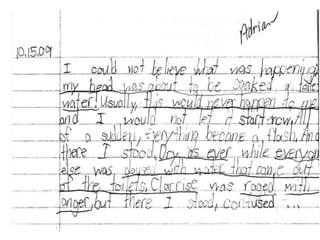 Adrian
10.15.09
I could not believe what was happening
my head was about to be soaked in toilet
water! Usually, this would never happen to me
and I would not let it start now. All
of a sudden, Everything became a flash. And
there I stood, Dry as ever while everyone
else was doused with water that came out
of the toilets. Clarrise was raged with
anger, but there I stood, confused ...